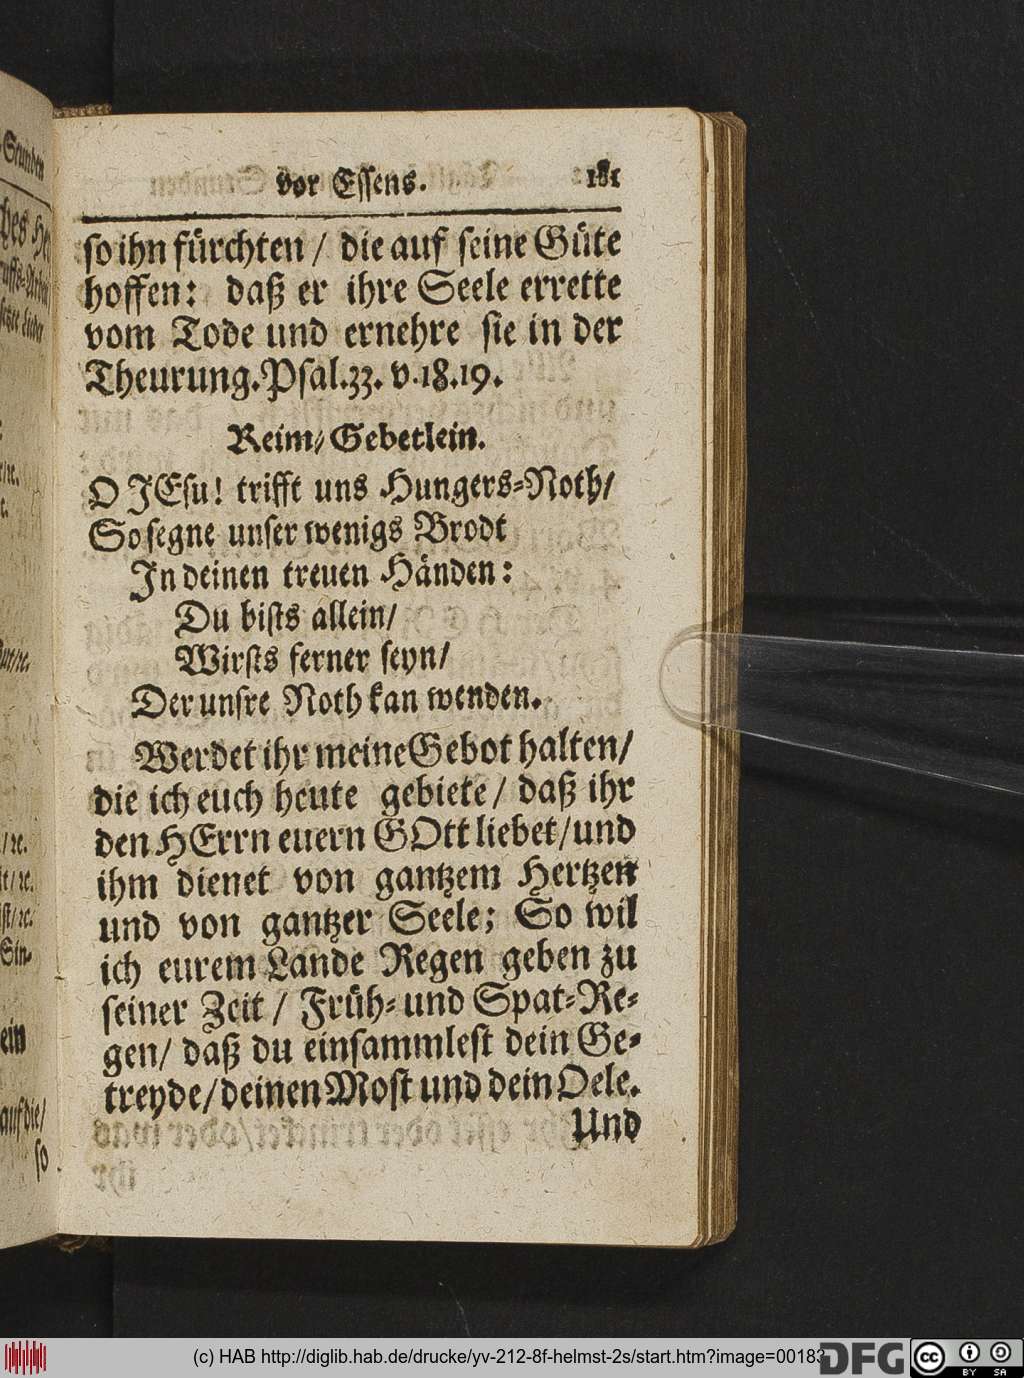 vor Essens. 181
so ihn fürchten / die auf seine Güte
hoffen: daß er ihre Seele errette
vom Tode und ernehre sie in der
Theurung. Psal. 33. v. 18. 19.
Reim/Gebetlein.
O JEsu! trifft uns Hungers-Noth/
So segne unser wenigs Brodt
In deinen treuen Händen:
Du bists allein/
Wirsts ferner seyn/
Der unsre Noth kan wenden.
Werdet ihr meine Gebot halten/
die ich euch heute gebiete / daß ihr
den HErrn euern GOtt liebet/und
ihm dienet von gantzem Hertzen
und von gantzer Seele; So wil
ich eurem Lande Regen geben zu
seiner Zeit / Früh- und Spat-Re-
gen/ daß du einsammlest dein Ge-
treyde/deinen Most und dein Oele.
Und
(c) HAB http://diglib.hab.de/drucke/yv-212-8f-helmst-2s/start.htm?image=00183
DFG
cc BY SA